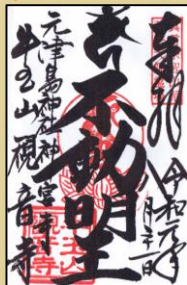 奉拝
令和元年
月廿一日
不動明王
元津島神社神宮寺
牛玉山観音寺